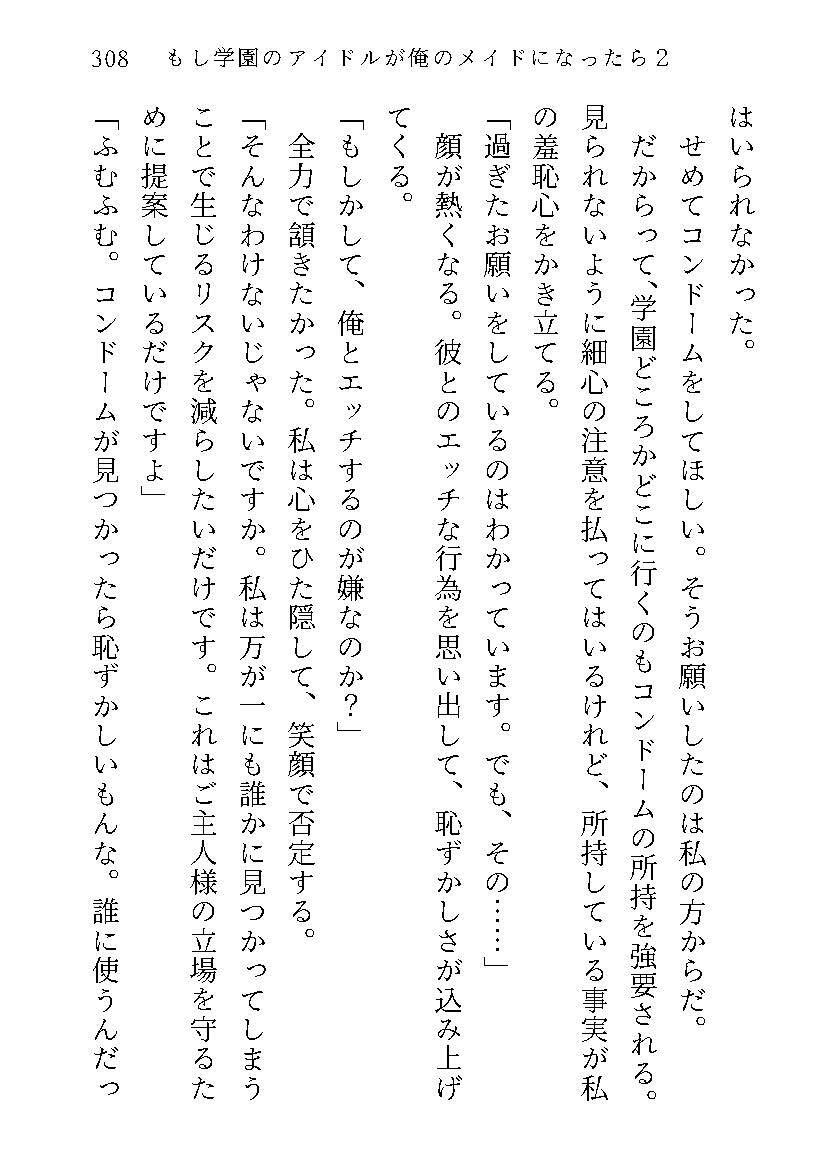 308　もし学園のアイドルが俺のメイドになったら２
はいられなかった。
　せめてコンドームをしてほしい。そうお願いしたのは私の方からだ。
　だからって、学園どころかどこに行くのもコンドームの所持を強要される。
見られないように細心の注意を払ってはいるけれど、所持している事実が私
の羞恥心をかき立てる。
「過ぎたお願いをしているのはわかっています。でも、その……」
　顔が熱くなる。彼とのエッチな行為を思い出して、恥ずかしさが込み上げ
てくる。
「もしかして、俺とエッチするのが嫌なのか？」
　全力で頷きたかった。私は心をひた隠して、笑顔で否定する。
「そんなわけないじゃないですか。私は万が一にも誰かに見つかってしまう
ことで生じるリスクを減らしたいだけです。これはご主人様の立場を守るた
めに提案しているだけですよ」
「ふむふむ。コンドームが見つかったら恥ずかしいもんな。誰に使うんだっ